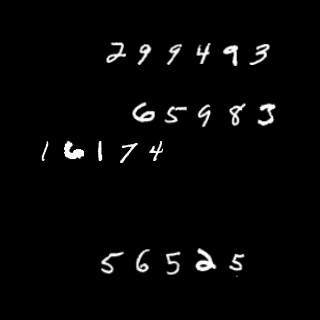 299493
65983
16174
56525